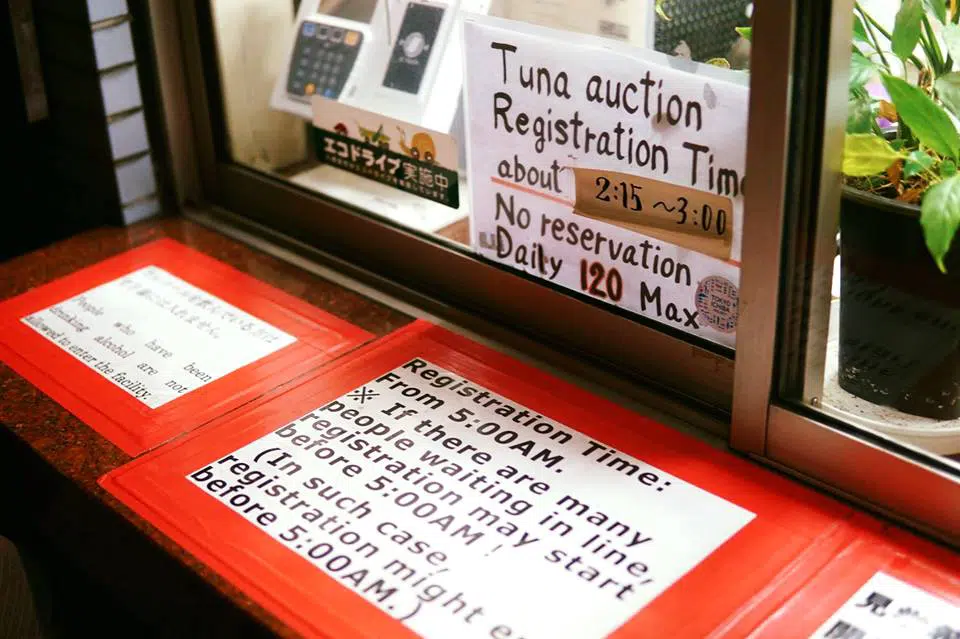 Tuna auction
Registration Time
about 2:15 ~3:00
No reservation
Daily 120 Max
エコドライブ実施中
People who have been
drinking alcohol are not
allowed to enter the facility.
Registration Time:
From 5:00AM.
※ If there are many
people waiting in line,
registration may start
before 5:00AM !
(In such case,
registration might e
before 5:00AM.)
見学